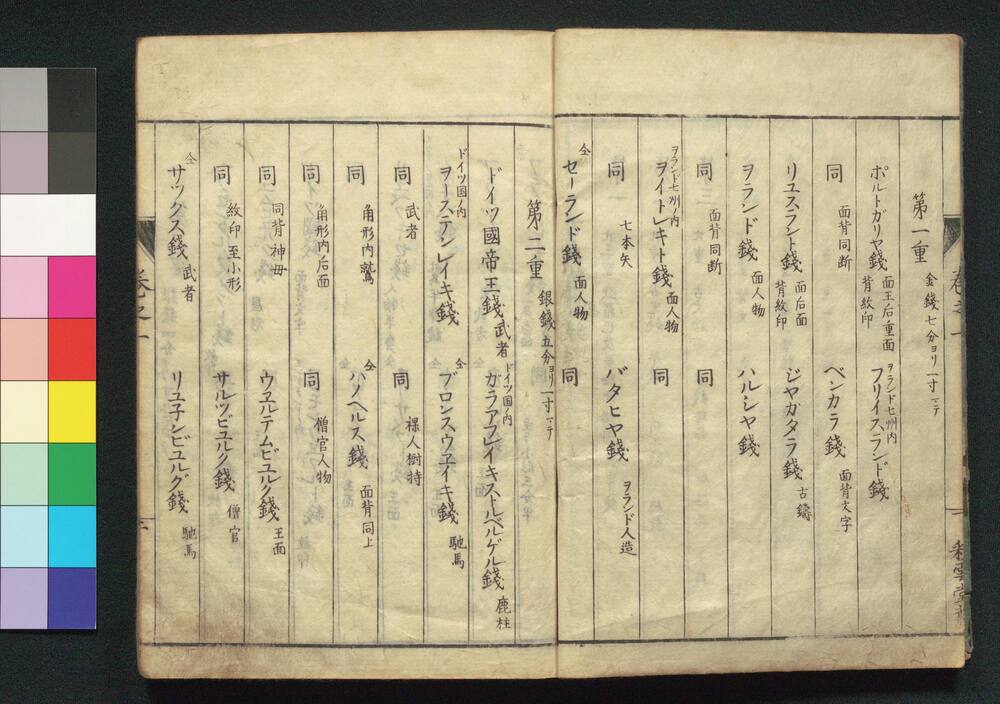 第一重 金錢七分ヨリ一寸マテ
ポルトガリヤ錢 面王后重面 背紋印 ヲランド七州内 フリイスランド錢
同 面背同断 ベンカラ錢 面背文字
リユスラント錢 面后面 背紋印 ジヤガタラ錢 古鑄
ヲランド錢 面人物 ハルシヤ錢
同 面背同断 同
ヲランド七州ノ内 ヲイトレキト錢 面人物 同
同 七本矢 バタヒヤ錢 ヲランド人造
仝 セーランド錢 面人物 同
第二重 銀錢五分ヨリ一寸マテ
ドイツ國帝王錢 武者 ドイツ国ノ内 ガラアフレイキストルベルゲル錢 鹿柱
ドイツ国ノ内 ヲーステンレイキ錢 仝 ブロンスウヱイキ錢 馳馬
同 武者 同 裸人樹持
同 角形内鷲 仝 ハノヘルス錢 面背同上
同 角形内后面 同 僧官人物
同 同背神母 ウヱルテムビユルク錢 王面
同 紋印 至小形 サルツビユルク錢 僧官
仝 サツクス錢 武者 リユ子ンビユルグ錢 馳馬
卷之一